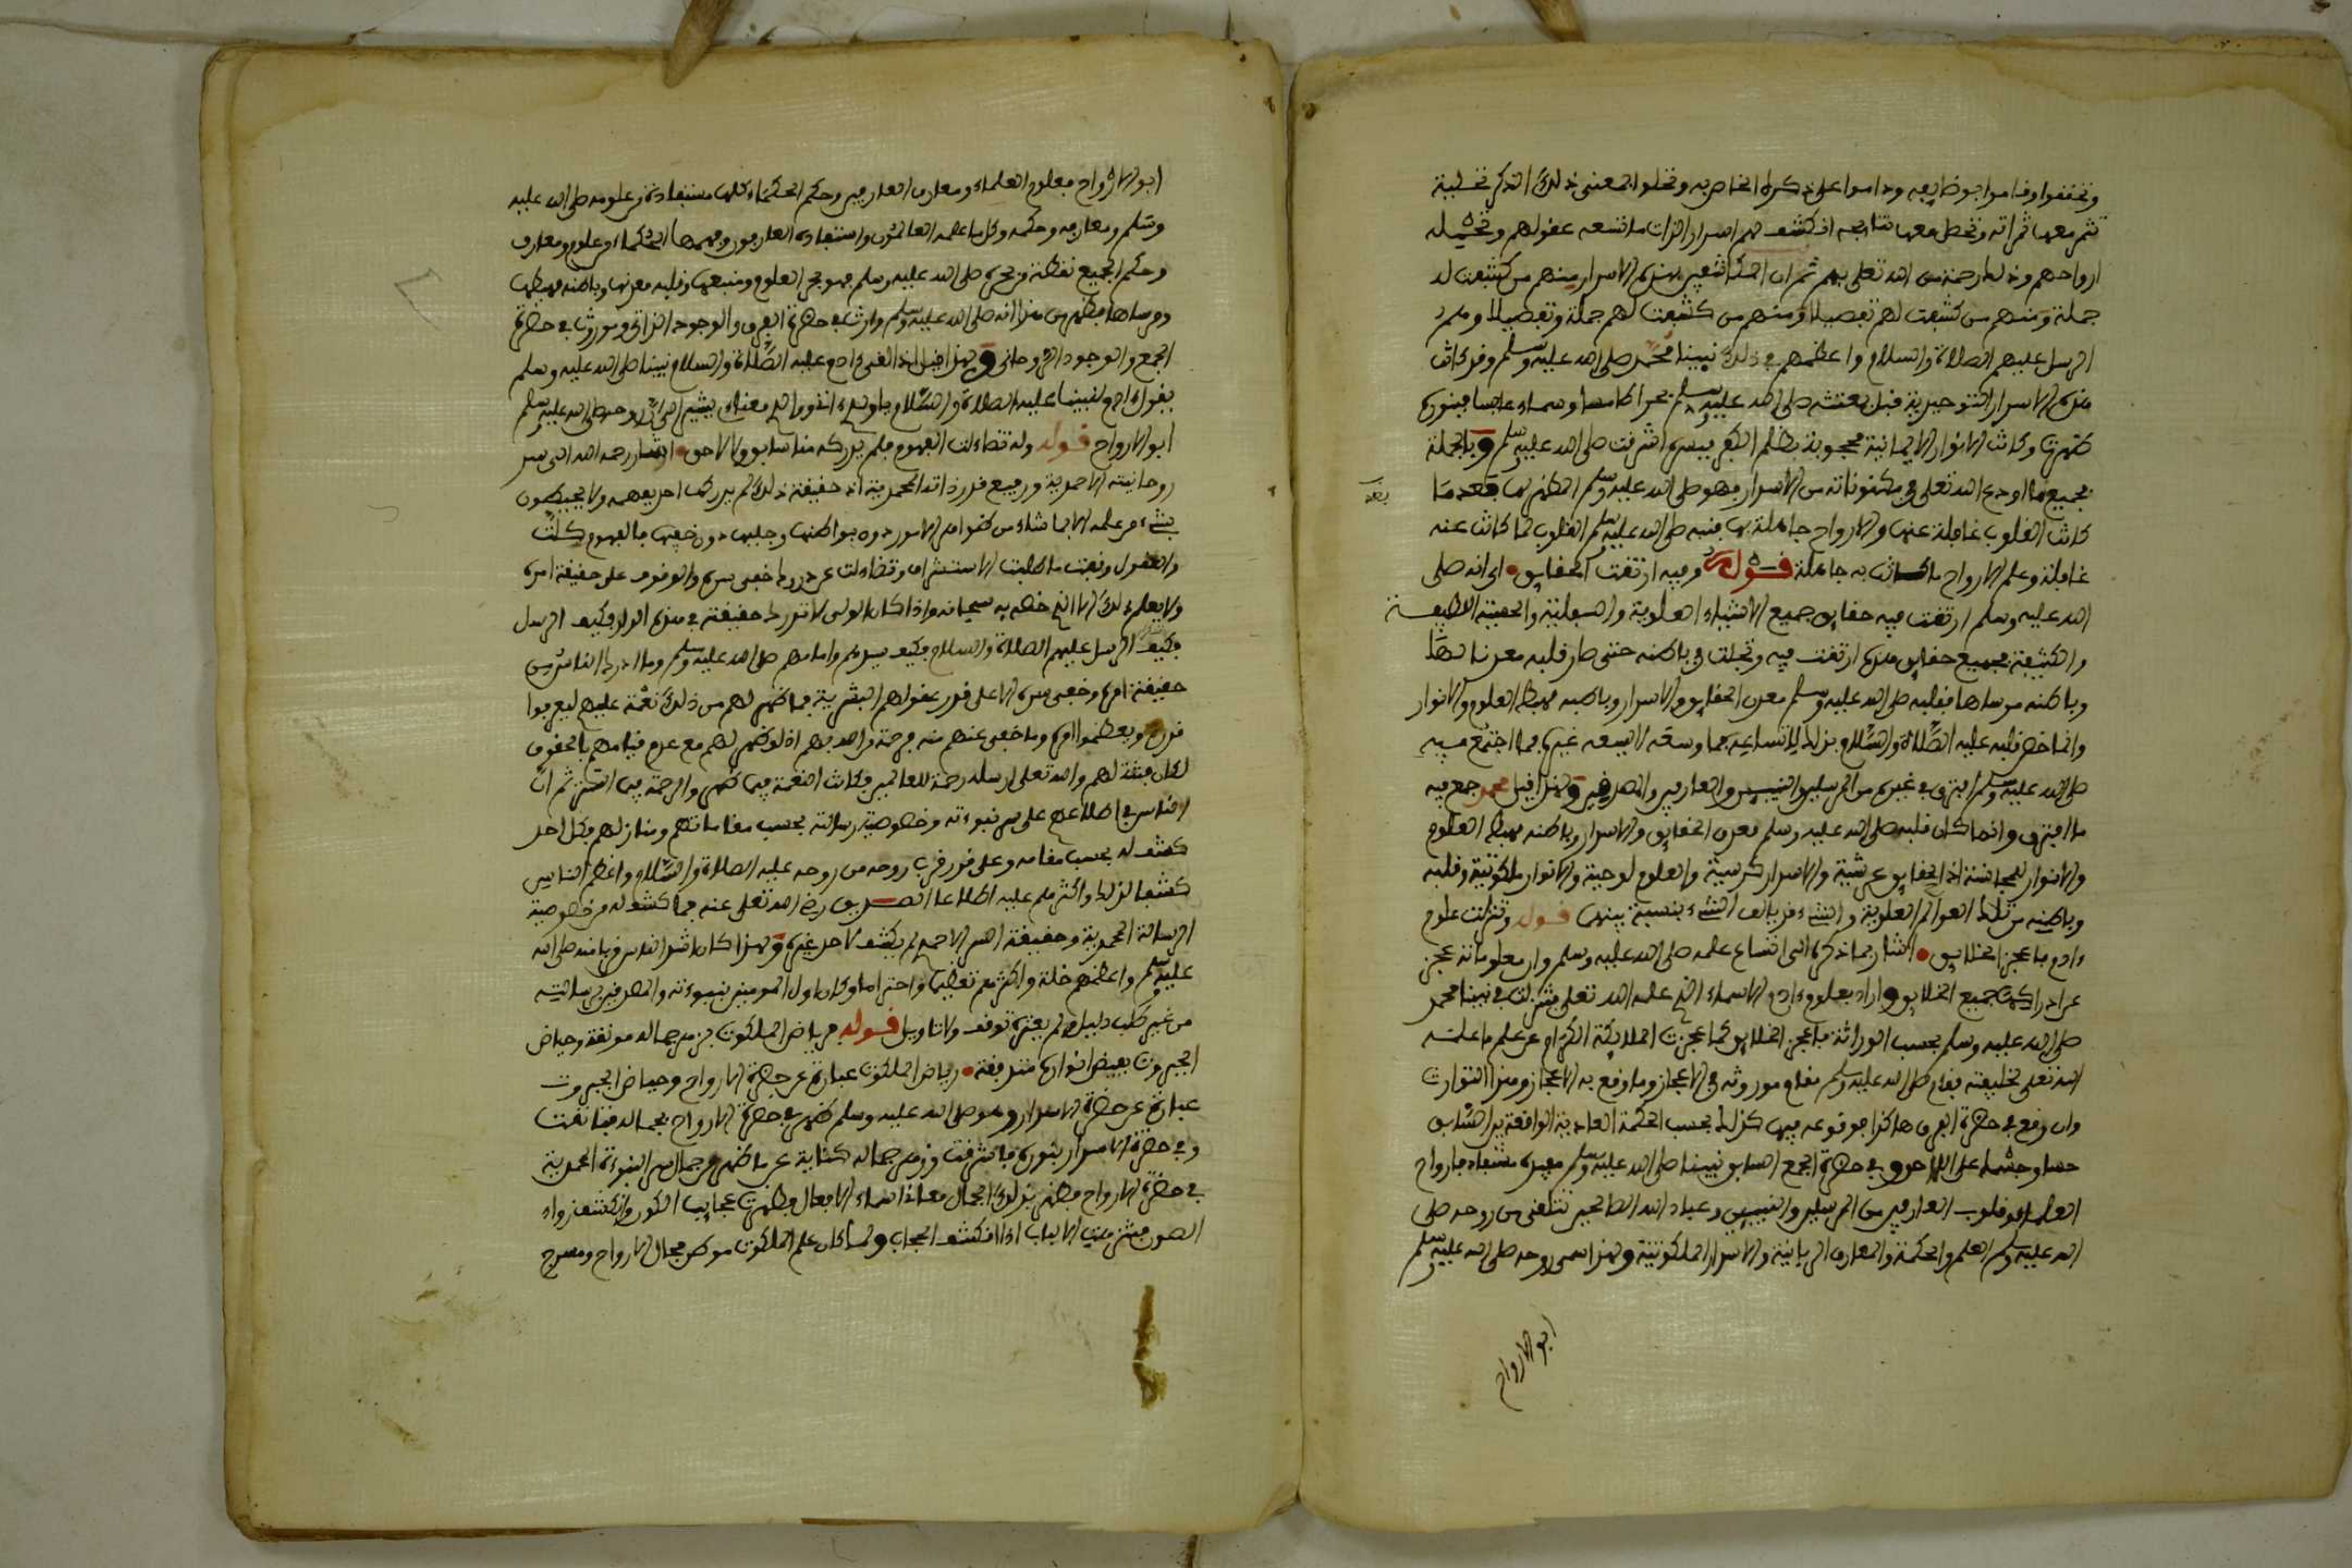 وتحققوا وقاموا بوظايفه وداموا على ذكره الخاص به وتخلوا لمعنى ذلك الذكر تخلية
تثمر معها ثمراته وتحصل معها نتايجه انكشف لهم اسرار الذات ما تسعه عقولهم وتحمله
ارواحهم وذلك رحمة من الله تعلى بهم ثم ان المكاشفين بهذه الاسرار منهم من كشفت له
جملة ومنهم من كشفت لهم تفصيلا ومنهم من كشفت لهم جملة وتفصيلا وهم
الرسل عليهم الصلاة والسلام واعظمهم في ذلك نبينا محمد صلى الله عليه وسلم وقد كانت
هذه الاسرار التوحيدية قبل بعثته صلى الله عليه وسلم بحرا طامسا وسماء عابسا فبنوره
ظهرت وكانت الانوار الايمانية محجوبة بظلم الكفر فبسره اشرقت صلى الله عليه وسلم وبالجملة
فجميع ما اودع الله تعلى في مكنوناته من الاسرار فهو صلى الله عليه وسلم المظهر لها بعدما
بعد
كانت القلوب غافلة عنها والارواح جاهلة بها فنبه صلى الله عليه وسلم القلوب لما كانت عنه
غافلة وعلم الارواح ما كانت به جاهلة قوله وفيه ارتقت الحقايق اي انه صلى
الله عليه وسلم ارتقت فيه حقايق جميع الاشياء العلوية والسفلية والحقية اللطيفة
والكثيفة فجميع حقايق هذه ارتقت فيه وتجلت في باطنه حتى صار قلبه معدنا لها
وباطنه مرساها فقلبه صلى الله عليه وسلم معدن الحقايق والاسرار وباطنه مهبط العلوم والانوار
وانما خص قلبه عليه الصلاة والسلام بذلك لاتساعه بما وسعه لا يسعه غيره فما اجتمع فيه
صلى الله عليه وسلم افترق في غيره من المرسلين والنبيين والعارفين والصديقين ولهذا قيل محمد جمع فيه
ما افترق وانما كان قلبه صلى الله عليه وسلم معدن الحقايق والاسرار وباطنه مهبط العلوم
والانوار للمجانسة اذ الحقايق عرشية والاسرار كرسية والعلوم لوحية والانوار ملكوتية وقلبه
وباطنه من تلك العوالم العلوية والشيء قد يالف الشيء بنسبة بينهما قوله وتنزلت علوم
ءادم فاعجز الخلايق اشار بما ذكره الى اتساع علمه صلى الله عليه وسلم وان معلوماته عجز
عن ادراكها جميع الخلايق واراد بعلوم ءادم الاسماء التي علمه الله تعلى فتنزلت في نبينا محمد
صلى الله عليه وسلم بحسب الوراثة فاعجز الخلايق كما عجزت الملايكة الكرام عن علم ما علمه
الله تعلى لخليفته فقام صلى الله عليه وسلم مقام موروثه في الاعجاز وما وقع به الاعجاز وهذا التوارث
وان وقع في حضرة الفرق هكذا فوقوعه فيها كذلك بحسب الحكمة العادية الواقعة من السابق
حسا وجثما على اللاحق وفي حضرة الجمع السابق نبينا صلى الله عليه وسلم فغيره مستفاد فارواح
العلماء وقلوب العارفين من المرسلين والنبيين وعباد الله الصالحين تتلقى من روحه صلى
الله عليه وسلم العلم والحكمة والمعارف الربانية والاسرار الملكوتية ولهذا سمى روحه صلى الله عليه وسلم
ابو الارواح
ابو الارواح فعلوم العلماء ومعارف العارفين وحكم الحكماء كلها مستفادة من علومه صلى الله عليه
وسلم ومعارفه وحكمه وكل ما علمه العالمون واستفاده العارفون وفهمها الحكماء من علوم ومعارف
وحكم الجميع نقطة من بحره صلى الله عليه وسلم فهو بحر العلوم ومنبعها وقلبه معدنها وباطنه مهبطها
ومرساها فظهر من هذا انه صلى الله عليه وسلم وارث في حضرة الفرق والوجود الذاتي وموروث في حضرة
الجمع والوجود الروحاني ولهذا قيل لما لقي ءادم عليه الصلاة والسلام نبينا صلى الله عليه وسلم
يقول ءادم لنبينا عليه الصلاة والسلام يا ولد ذاتي ووالد معناي يشير الى ان روحه صلى الله عليه وسلم
ابو الارواح قوله وله تضاءلت الفهوم فلم يدركه منا سابق ولا لاحق اشار رحمه الله الى سر
روحانيته الاحمدية ورفيع قدر ذاته المحمدية اذ حقيقة ذلك لم يدركها احد بفهمه ولا يحيطون
بشيء من علمه الا بما شاء من ظواهر الامور دون بواطنها وجليها دون خفيها فالفهوم كلت
والعقول وقفت ما طلبت الاستشراف وتضاءلت عن درر ما خفي سره والوقوف على حقيقة امره
ولا يعلم ذلك الا الذي خصه به سبحانه واذا كان الولي لا تدرك حقيقة في هذه الدار فكيف الرسل
فكيف الرسل عليهم الصلاة والسلام فكيف بسيدهم وامامهم صلى الله عليه وسلم وما ادرك الناس من
حقيقة امره وخفي سره الا على قدر عقولهم البشرية فما ظهر لهم من ذلك نعمة عليهم ليعرفوا
قدره ويعظموا امره وما خفي عنهم منه فرحمة من الله بهم اذ لو ظهر لهم مع عدم قيامهم بالحقوق
لكان فتنة لهم والله تعلى ارسله رحمة للعالمين فكانت النعمة فيما ظهر والرحمة فيما استتر ثم ان
الناس في اطلاعهم على سر نبوءته وخصوصية رسالته بحسب مقاماتهم ومنازلهم فكل احد
كشف له بحسب مقامه وعلى قدر قرب روحه من روحه عليه الصلاة والسلام واعظم الناس
كشفا لذلك واكثرهم عليه اطلاعا الصديق رضي الله تعلى عنه فما كشف له من خصوصية
الرسالة المحمدية وحقيقة السر الاحمدي لم يكشف لاحد غيره ولهذا كان اشد الناس قربا منه صلى الله
عليه وسلم واعظمهم خلة واكثرهم تعظيما واحتراما وكان اول المومنين بنبوءته والمصدقين برسالته
من غير طلب دليل ولم يعتره توقف ولا تاويل قوله فرياض الملكوت بزهر جماله مونقة وحياض
الجبروت بفيض انواره متدفقة رياض الملكوت عبارة عن حضرة الارواح وحياض الجبروت
عبارة عن حضرة الاسرار وهو صلى الله عليه وسلم ظهر في حضرة الارواح بجماله فتانقت
وفي حضرة الاسرار بنوره فاشرقت وزهر جماله كناية عن ما ظهر من جمال سر النبوءة المحمدية
في حضرة الارواح فظهر بذلك الجمال معاني اسماء الافعال فظهرت عجايب الكون وانكشف رواه
الصون فشهدت الالباب اذا انكشف الحجاب ولما كان علم الملكوت موطن مجال الارواح ومسرح